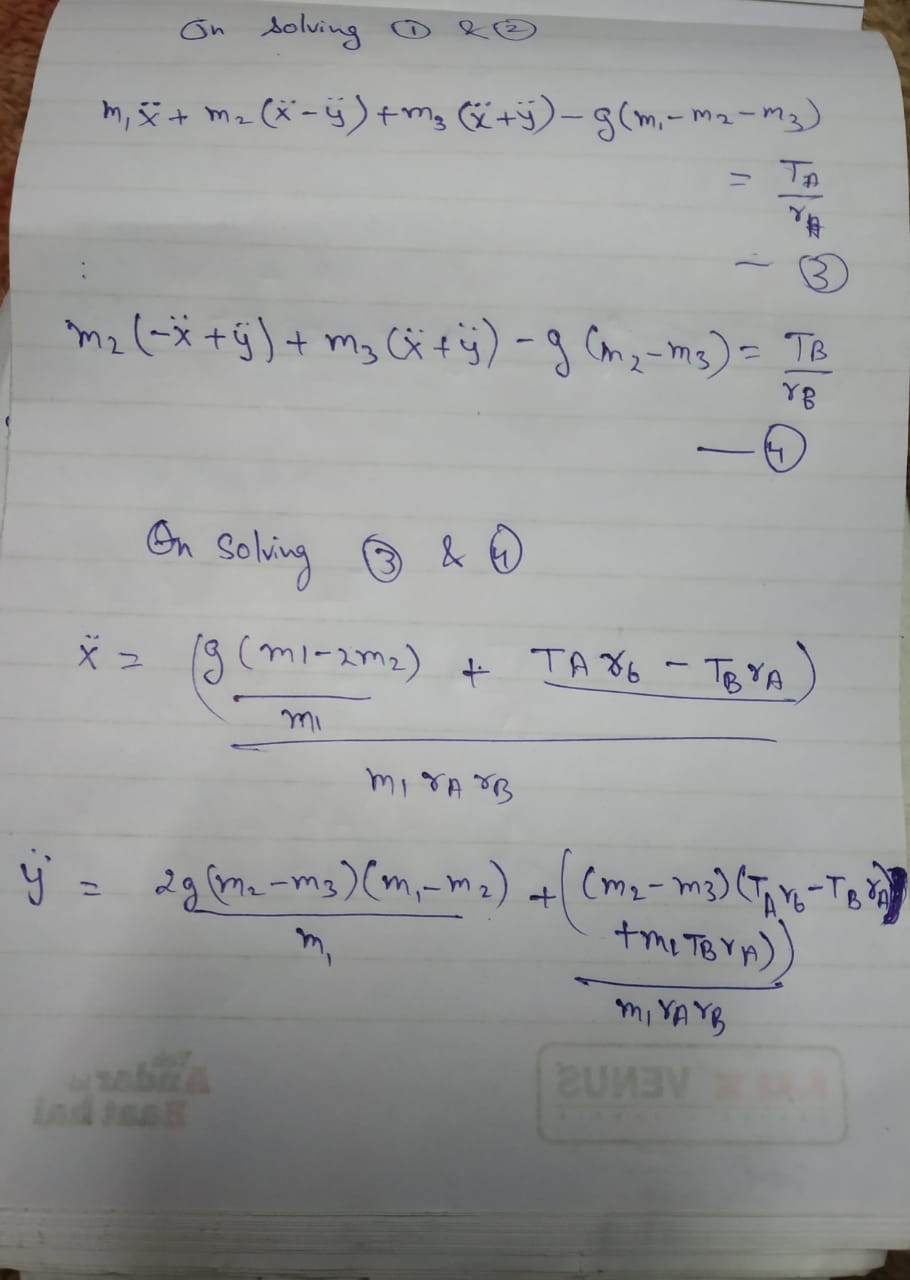 On solving ① & ②
m₁ẍ + m₂(ẍ-ÿ) + m₃(ẍ+ÿ) - g(m₁-m₂-m₃)
= T_A / r_A
— ③
:
m₂(-ẍ+ÿ) + m₃(ẍ+ÿ) - g(m₂-m₃) = T_B / r_B
— ④
On solving ③ & ④
ẍ = (g(m1-2m₂) / m1 + TA r_b - T_B r_A) / m₁ r_A r_B
ÿ = 2g(m₂-m₃)(m₁-m₂) / m₁ + ((m₂-m₃)(T_A r_b - T_B r_A)
+ m₁ T_B r_A)) / m₁ r_A r_B
VENUS
Andar
Baat hai